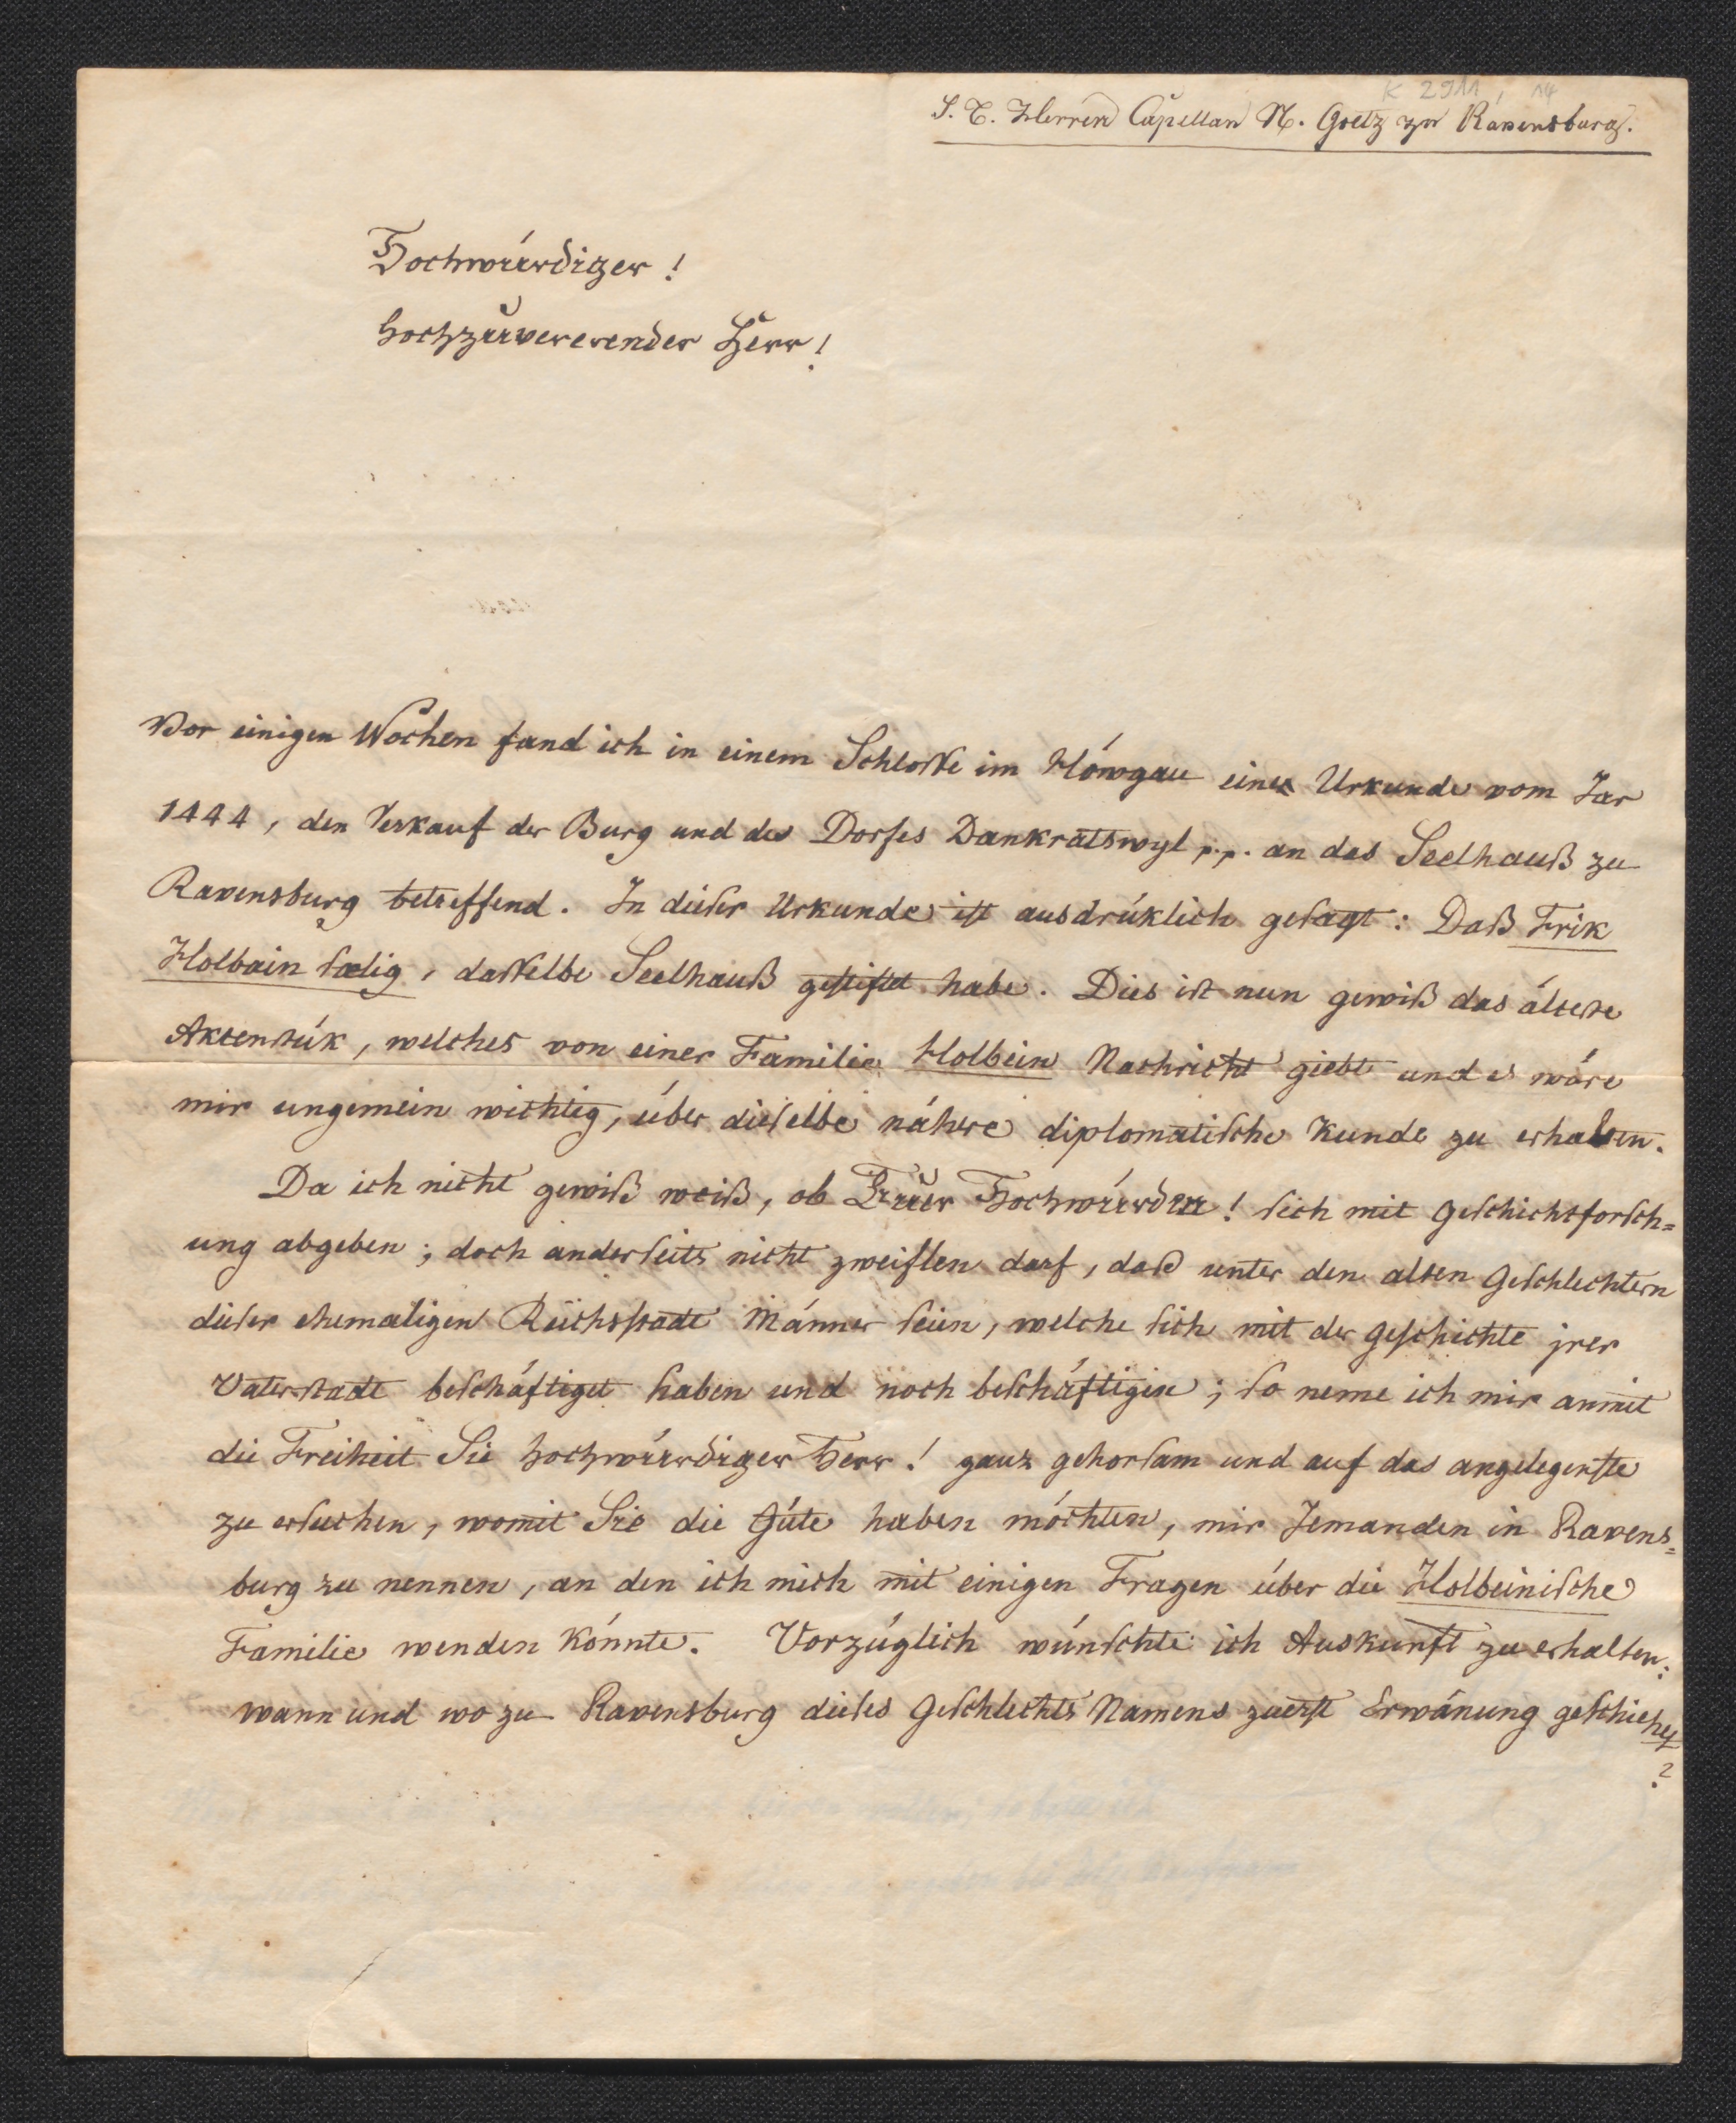 K 2911, 14
S. T. Herren Capellan N. Goetz zu Ravensburg.
Hochwürdiger!
Hochzuvererender Herr!
Vor einigen Wochen fand ich in einem Schlosse im Höwgau eine Urkunde vom Jar
1444, den Verkauf der Burg und des Dorfes Dankratswyl p.p. an das Seelhauß zu
Ravensburg betreffend. In dieser Urkunde ist ausdrüklich gesagt: Daß Frik
Holbain sælig, dasselbe Seelhauß gestiftet habe. Dies ist nun gewiß das älteste
Aktenstük, welches von einer Familie Holbein Nachricht giebt und es wäre
mir ungemein wichtig, über dieselbe nähere diplomatische Kunde zu erhalten.
Da ich nicht gewiß weiß, ob Euer Hochwürden! sich mit Geschichtsforsch=
ung abgeben; doch anderseits nicht zweiflen darf, daß unter den alten Geschlechtern
dieser ehemaligen Reichsstadt Männer seien, welche sich mit der Geschichte jrer
Vaterstadt beschäftiget haben und noch beschäftigen; so neme ich mir anmit
die Freiheit Sie Hochwürdiger Herr! ganz gehorsam und auf das angelegenste
zu ersuchen, womit Sie die Güte haben möchten, mir Jemanden in Ravens=
burg zu nennen, an den ich mich mit einigen Fragen über die Holbeinische
Familie wenden könnte. Vorzüglich wünschte ich Auskunft zu erhalten:
wann und wo zu Ravensburg dieses Geschlechts Namens zuerst Erwänung geschiehet
?